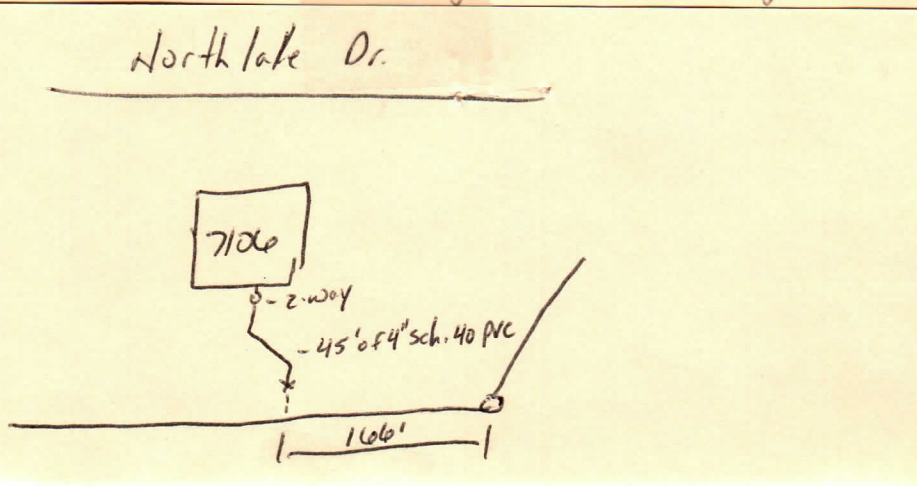 Northlake Dr.
7106
- 2-way
- 45' of 4" sch. 40 pvc
166'